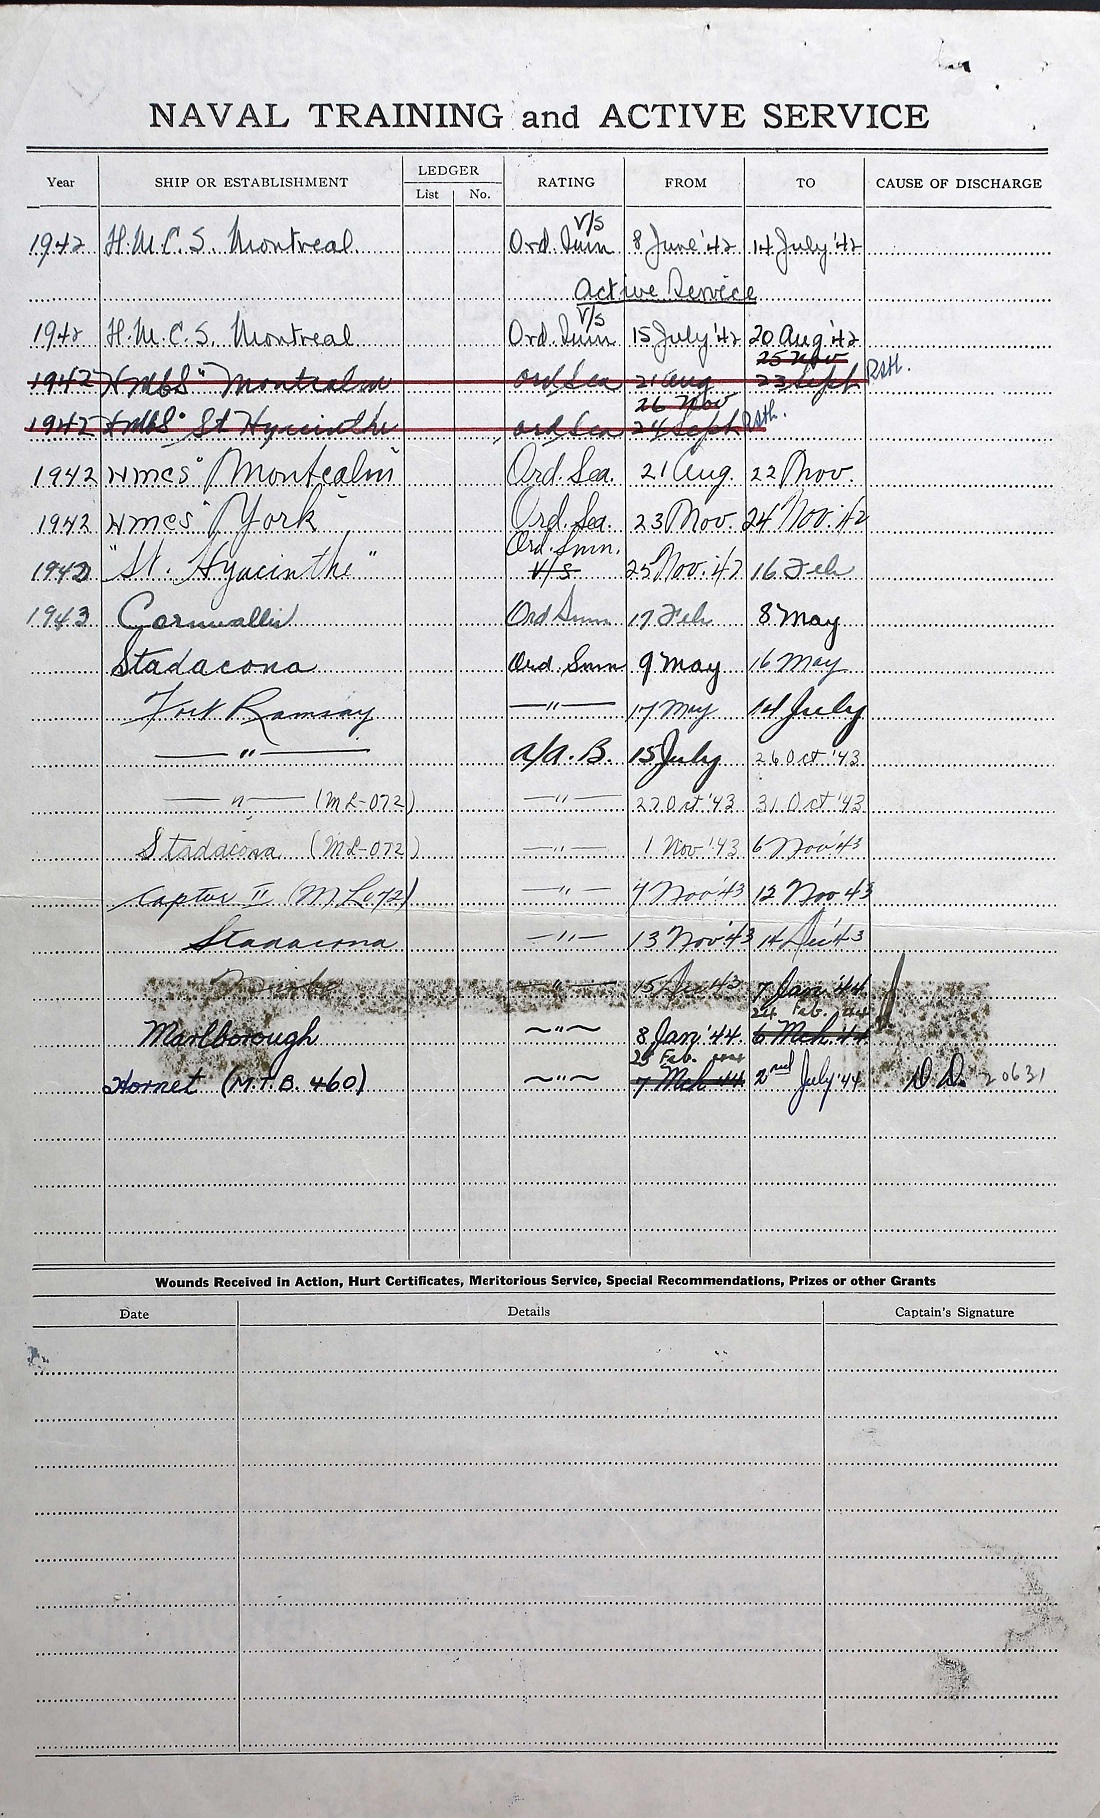 NAVAL TRAINING and ACTIVE SERVICE
Year SHIP OR ESTABLISHMENT LEDGER RATING FROM TO CAUSE OF DISCHARGE
List No.
V/S
1942 H.M.C.S. Montreal Ord. Smn 8 June '42 14 July '42
Active Service
V/S
1942 H.M.C.S. Montreal Ord. Smn 15 July '42 20 Aug '42
25 Nov
1942 Ord Sea 21 Aug 23 Sept
26 Nov
1942 St Hyacinthe Ord Sea 24 Sept
1942 HMCS "Montcalm" Ord. Sea. 21 Aug. 22 Nov.
1942 HMCS "York" Ord. Sea. 23 Nov. 24 Nov. 42
Ord. Smn.
1942 "St. Hyacinthe" V/S 25 Nov. 42 16 Feb
1943 Cornwallis Ord Smn 17 Feb 8 May
Stadacona Ord Smn 9 May 16 May
Fort Ramsay —"— 17 May 14 July
—"— A/A.B. 15 July 26 Oct '43
—"— (ML-072) —"— 27 Oct '43 31 Oct '43
Stadacona (ML-072) —"— 1 Nov '43 6 Nov '43
Captor II (ML072) —"— 7 Nov '43 12 Nov 43
Stadacona —"— 13 Nov '43 14 Dec '43
Niobe —"— 15 Dec 43 7 Jan '44
24 Feb. '44
Marlborough ~"~ 8 Jan '44. 6 Mch. 44
25 Feb.
Hornet (M.T.B. 460) ~"~ 7 Mch 44 2nd July '44 D.D. 20631
Wounds Received in Action, Hurt Certificates, Meritorious Service, Special Recommendations, Prizes or other Grants
Date Details Captain's Signature